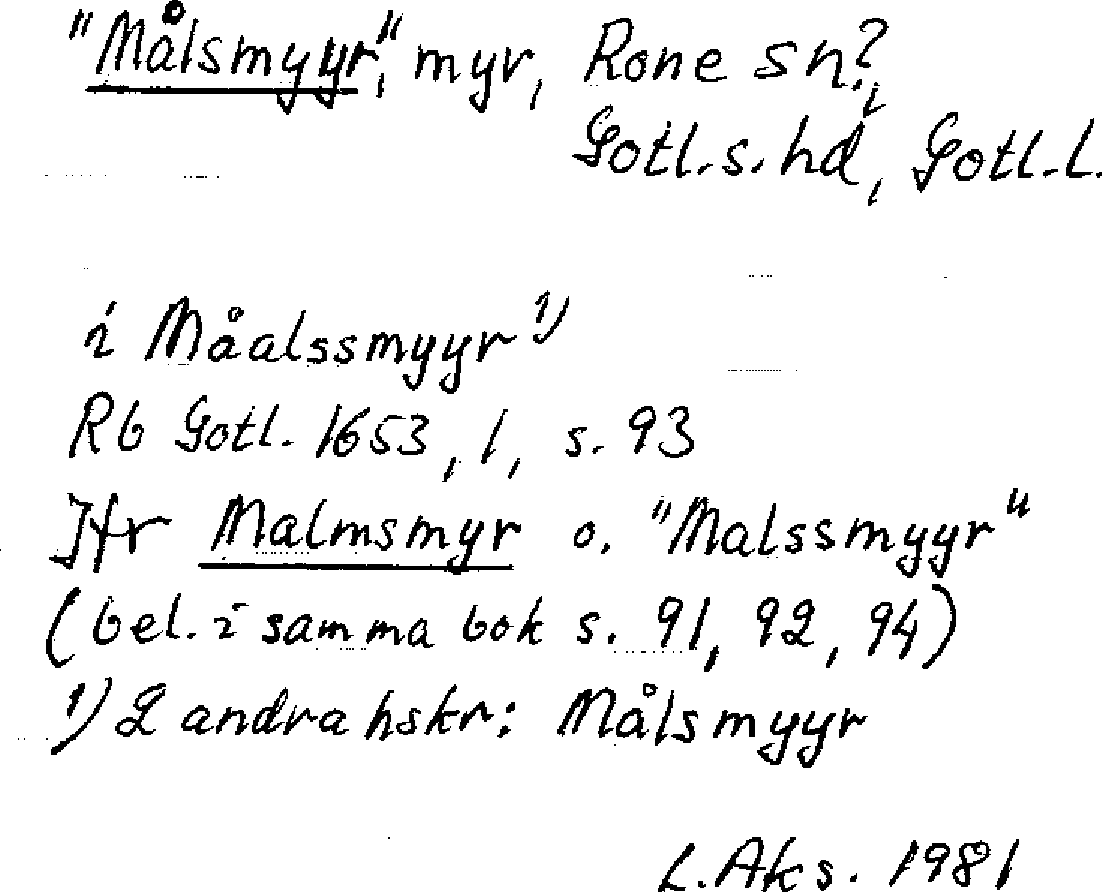 "Målsmyyr", myr, Rone sn?,
Gotl.s.hd, Gotl.l.
i Måalssmyyr 1)
Rb Gotl. 1653, 1, s. 93
Jfr Malmsmyr o. "Malssmyyr"
(bel. i samma bok s. 91, 92, 94)
1) 2 andra hskr: Målsmyyr
L. Aks. 1981